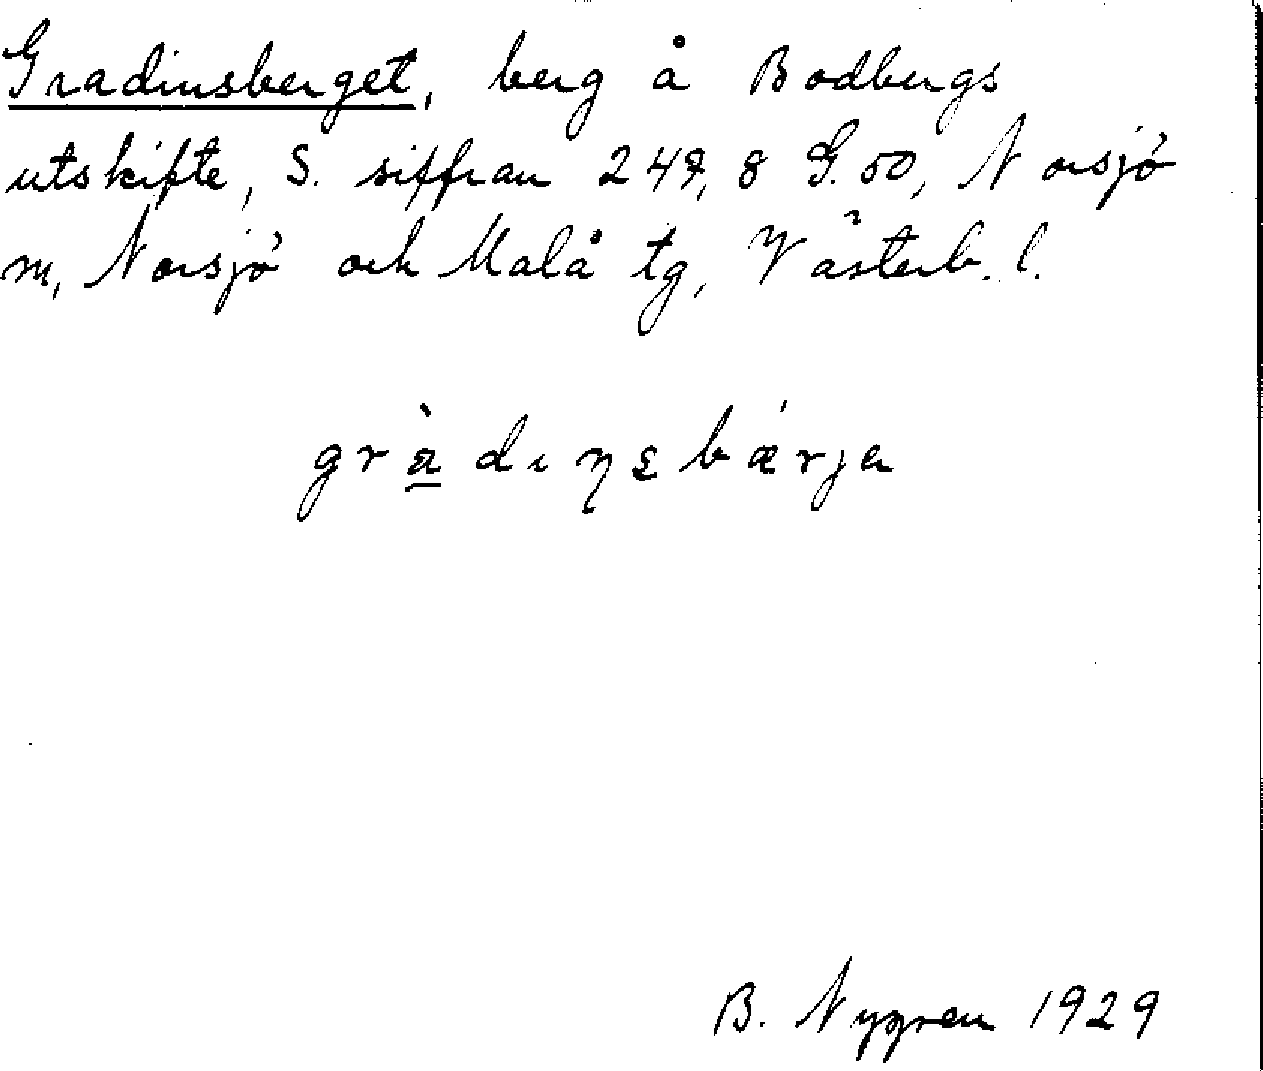 Gradinsberget, berg å Bodbergs
utskifte, S. siffran 249,8 G. 50, Norsjö
m, Norsjö och Malå tg, Västerb. l.
gràdiŋsbǽrja
B. Nygren 1929